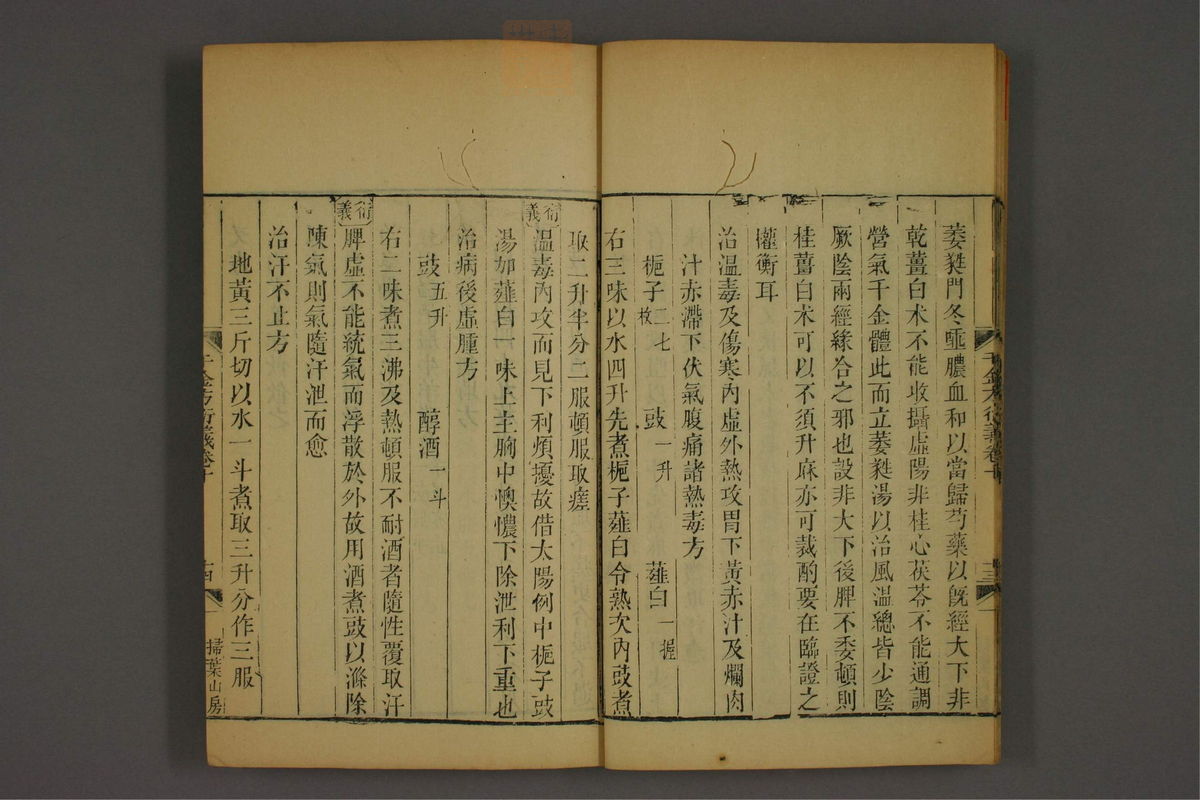 千金方衍義卷十
十三
萎蕤門冬唾膿血和以當歸芍藥以既經大下非
乾薑白朮不能收攝虛陽非桂心茯苓不能通調
營氣千金體此而立萎蕤湯以治風溫總皆少陰
厥陰兩經緣合之邪也設非大下後脾不委頓則
桂薑白朮可以不須升麻亦可裁酌要在臨證之
權衡耳
治溫毒及傷寒內虛外熱攻胃下黃赤汁及爛肉
汁赤滯下伏氣腹痛諸熱毒方
梔子二七枚 豉一升 薤白一握
右三味以水四升先煮梔子薤白令熟次內豉煮
取二升半分二服頓服取瘥
衍義
溫毒內攻而見下利煩擾故借太陽例中梔子豉
湯加薤白一味上主胸中懊憹下除泄利下重也
治病後虛腫方
豉五升 醇酒一斗
右二味煮三沸及熱頓服不耐酒者隨性覆取汗
衍義
脾虛不能統氣而浮散於外故用酒煮豉以滌除
陳氣則氣隨汗泄而愈
治汗不止方
地黃三斤切以水一斗煮取三升分作三服
千金方衍義卷十
十四
掃葉山房